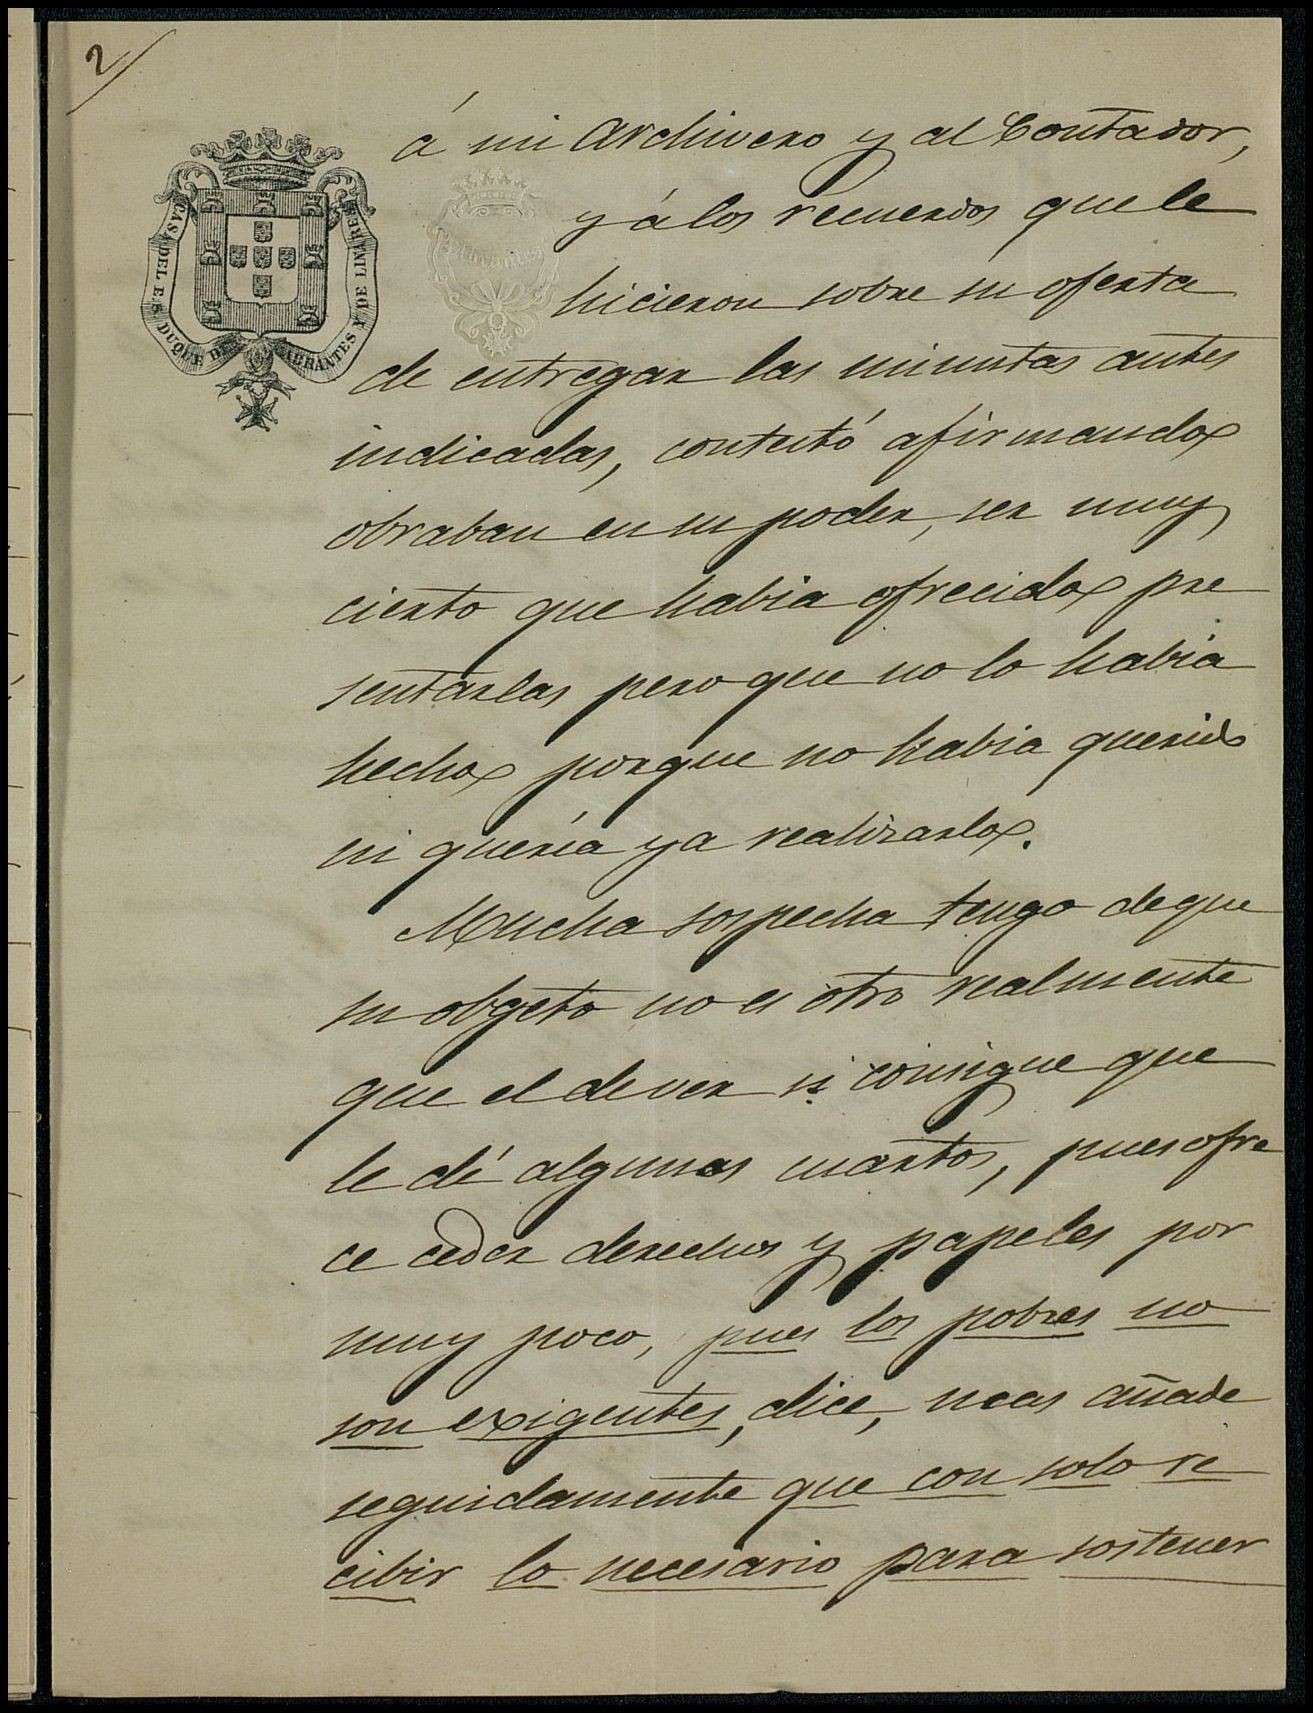 2/
CASA DEL E. S. DUQUE DE ABRANTES Y DE LINARES
á mi Archivero y al Contador,
y á los recuerdos que le
hicieron sobre su oferta
de entregar las minutas antes
indicadas, contestó afirmando
obraban en su poder, ser muy
cierto que habia ofrecido pre
sentarlas pero que no lo habia
hecho porque no habia querido
ni quería ya realizarlo.
Mucha sospecha tengo de que
su obgeto no es otro realmente
que el de ver si consigue que
le dé algunos cuartos, pues ofre
ce ceder derechos y papeles por
muy poco, pues los pobres no
son exigentes, dice, mas añade
seguidamente que con solo re
cibir lo necesario para sostener